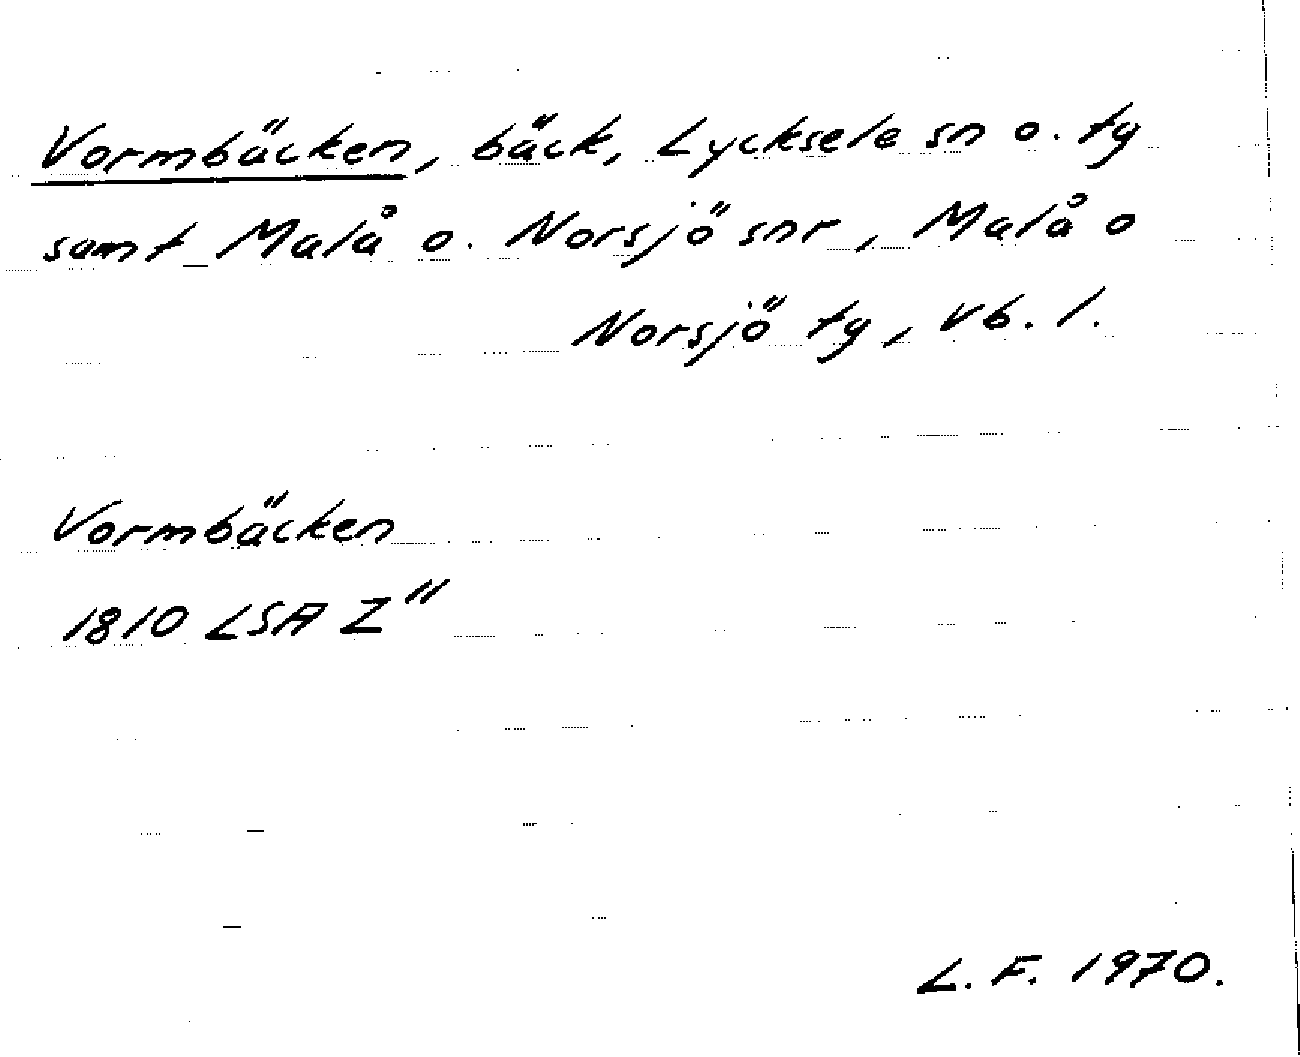 Vormbäcken, bäck, Lycksele sn o. tg
samt Malå o. Norsjö snr, Malå o
Norsjö tg, Vb. l.
Vormbäcken
1810 LSA Z"
L. F. 1970.